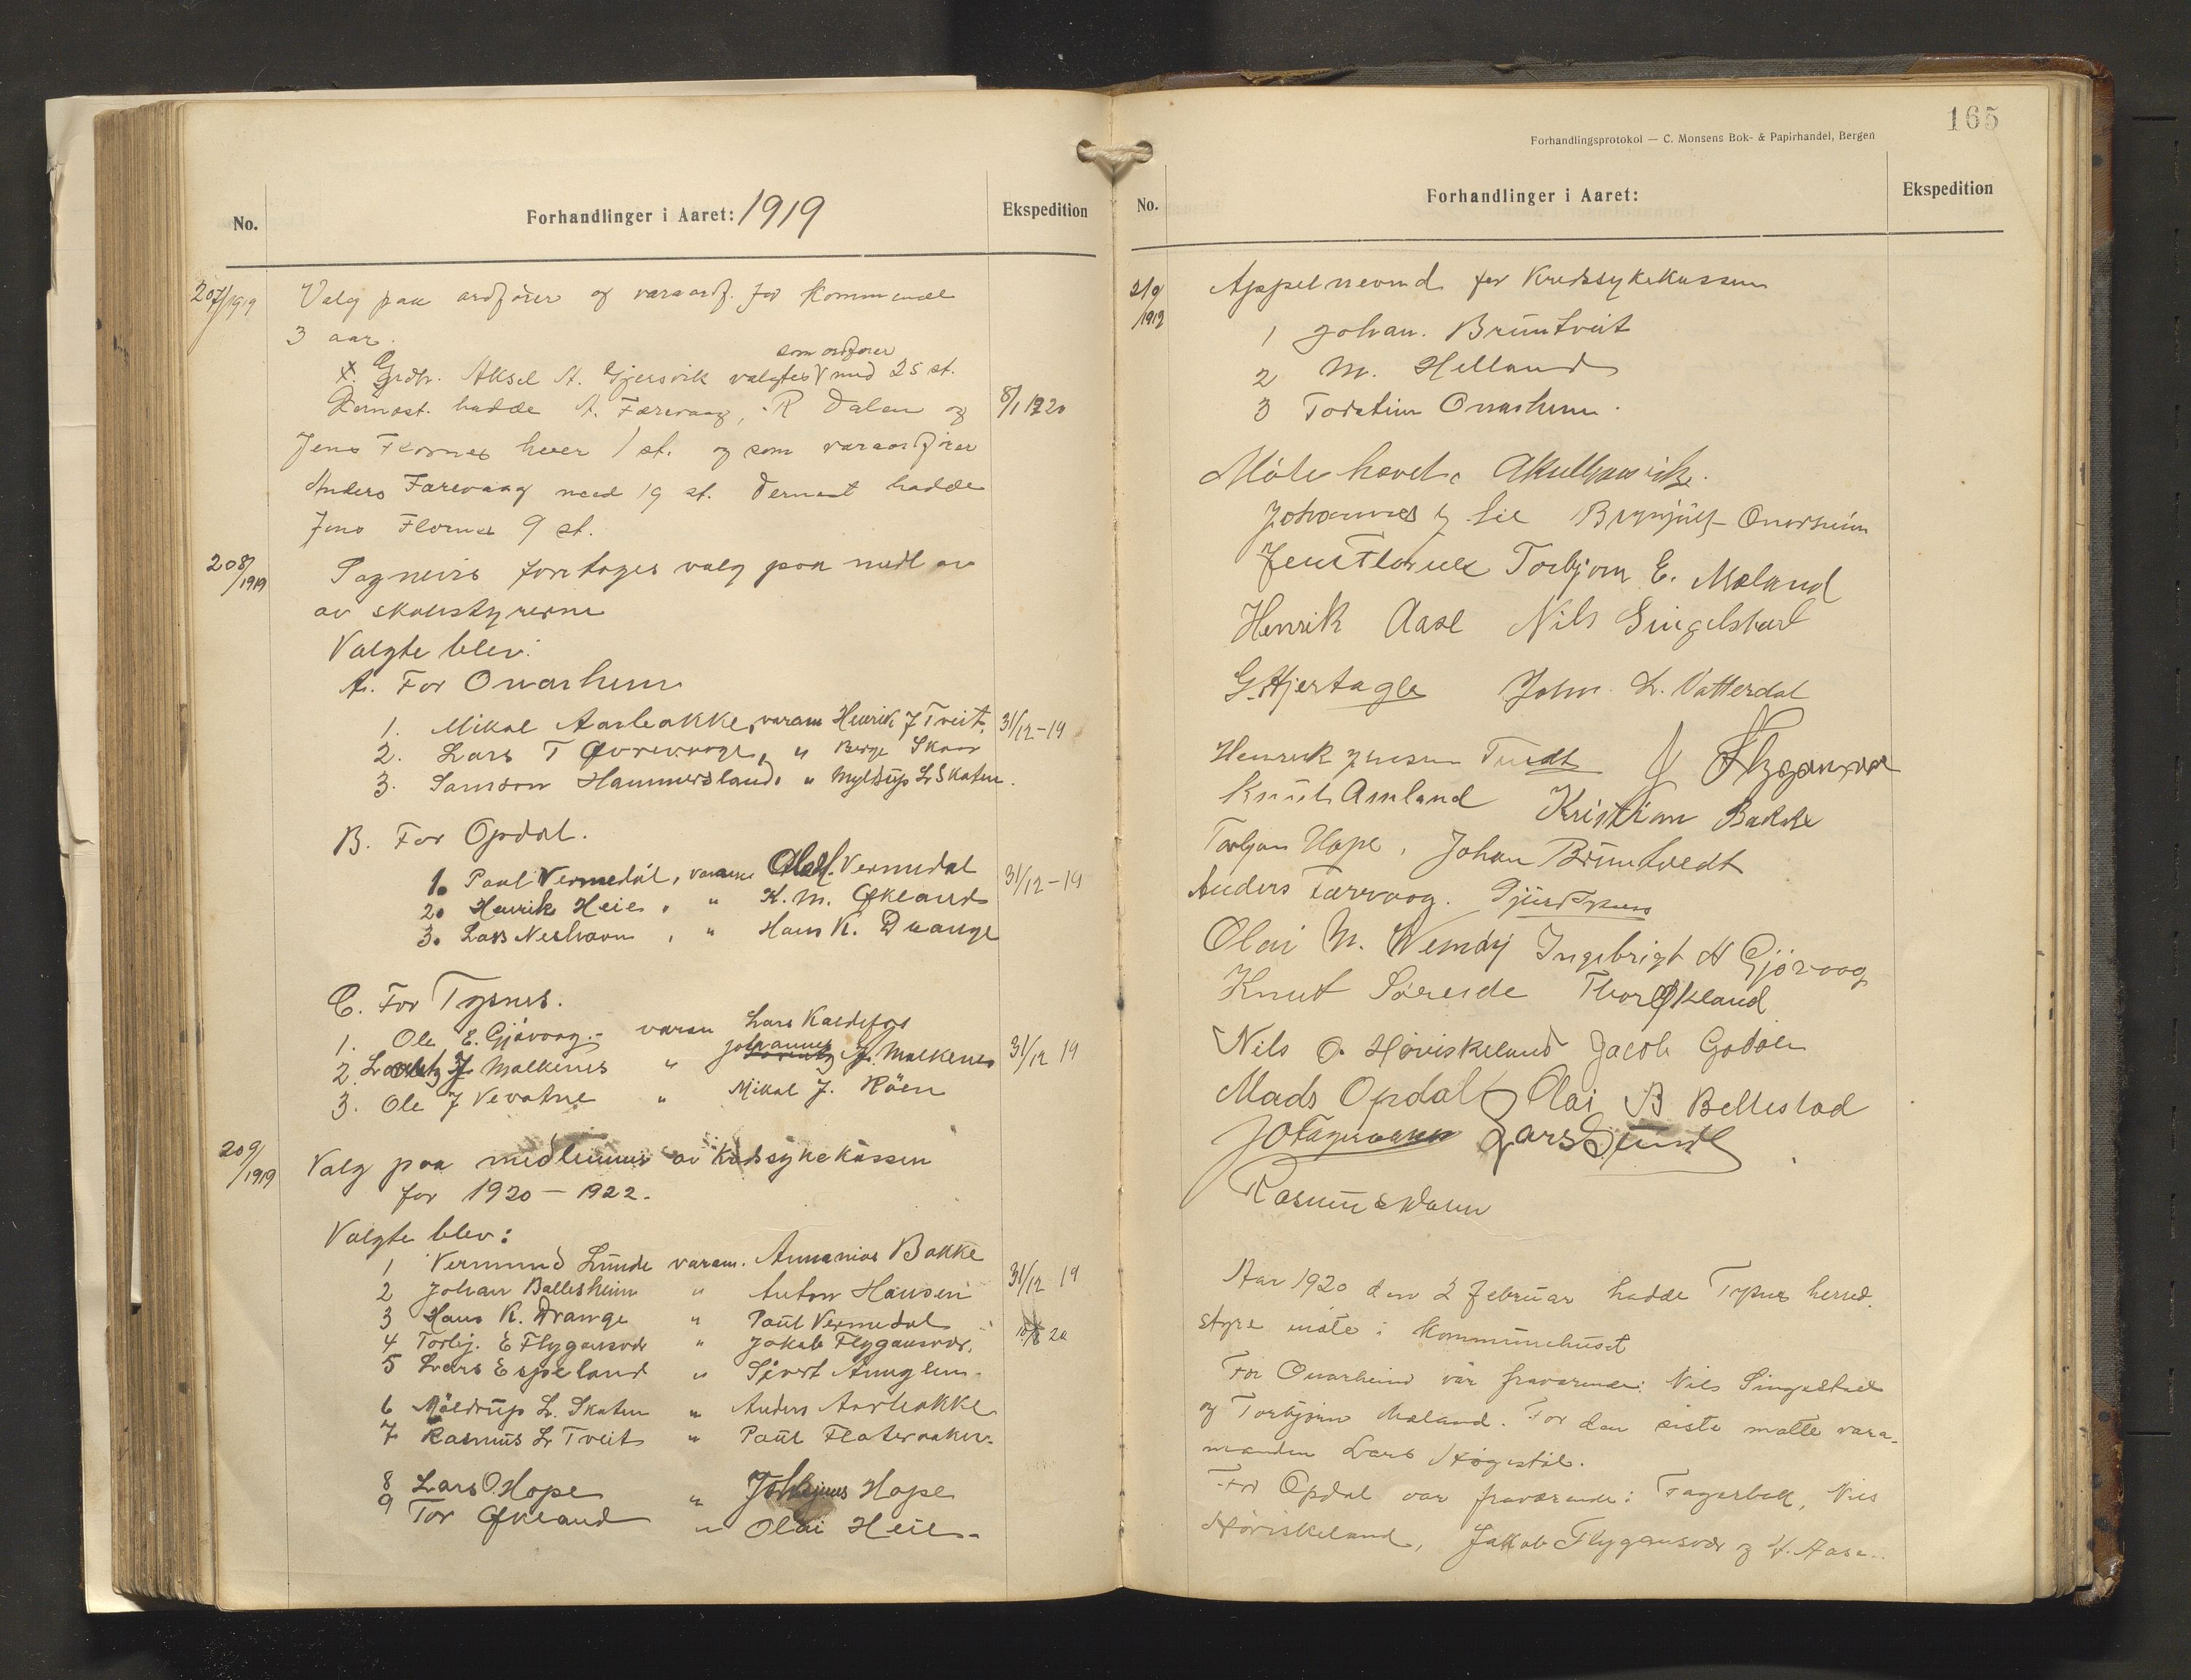 No.
Forhandlinger i Aaret: 1919
Ekspedition
207/1919
Valg paa ordfører og varaordf. for kommende
3 aar.
som ordfører
Grdbr. Aksel A. Gjersvik valgtes med 25 st.
Dernæst. hadde A. Færevaag, R Dalen og
8/1 1920
Jens Flornes hver 1 st. og som varaordfører
Anders Færevaag med 19 st. Dernest hadde
Jens Flornes 9 st.
208/1919
Sognevis foretages valg paa medl av
av skolestyrerne
Valgte blev:
A. For Onarheim
1. Mikal Aarbakke, varam Henrik J Tveit.
31/12-19
2. Lars T Øvrevaage, " Berge Skaar
3. Samson Hammersland. " Myldrup L Skaten.
B. For Opdal.
1. Paul Vermedal, varam Vermedal
31/12-19
2. Henrik Heie, " K. M. Økland
3. Lars Neshavn, " Hans K. Drange
C. For Tysnes.
1. Ole E. Gjøvaag.- varam Lars Kaldefos
2. Lorentz J Malkenes " Johannes J. Malkenes
31/12 19
3. Ole J Vevatne " Mikal J. Röen
209/1919
Valg paa medlemmer av Kredssykekassen
for 1920 - 1922.
Valgte blev:
1 Vermund Lunde varam. Annanias Bakke
2 Johan Ballesheim " Anton Hansen
31/12 19
3 Hans K. Drange " Paul Vermedal
4 Torbj. E Flygansvær " Jakob Flygansvær.
5 Lars Espeland " Sjvert Amuglien.
6 Möldrup L. Skaten " Anders Aarbakke
7 Rasmus L Tveit " Paul Flateraaker.
8 Lars O. Hope " Hope
9 Tor Økland " Olai Heie.
165
Forhandlingsprotokol — C. Monsens Bok- & Papirhandel, Bergen
No.
Forhandlinger i Aaret:
Ekspedition
210/1919
Appelnevnd for Kredssykekassen
1 Johan. Bruntveit
2 M. Helland
3 Torstein Onarheim.
Møte hævet. 
Johannes Lie Brynjulf Onarheim
Jens Flornes Torbjørn E. Mæland
Henrik Aase Nils Singelstad
G. Hjertager John L. Vatterdal
Henrik Jensen Tvedt J Flygansvær
Knut Amland Kristian Bakke
Torbjørn Hope, Johan Bruntvedt
Anders Færevaag.
Olai N. Wernøy Ingebrigt H Gjövaag
Knut Søreide Thor Økland
Nils O. Høviskeland Jacob Godøen
Mads Opdal Olai B Bellestad
Rasmus Dalen
Aar 1920 den 2 februar hadde Tysnes herred.
styre møte i kommunehuset
For Onarheim var fraværende: Nils Singelstad
og Torbjørn Mæland. For den siste møtte vara-
manden Lars Høgestøl.
For Opdal var fraværende: Fagerbak, Nils
Høviskeland, Jakob Flygansvær og H. Aase..